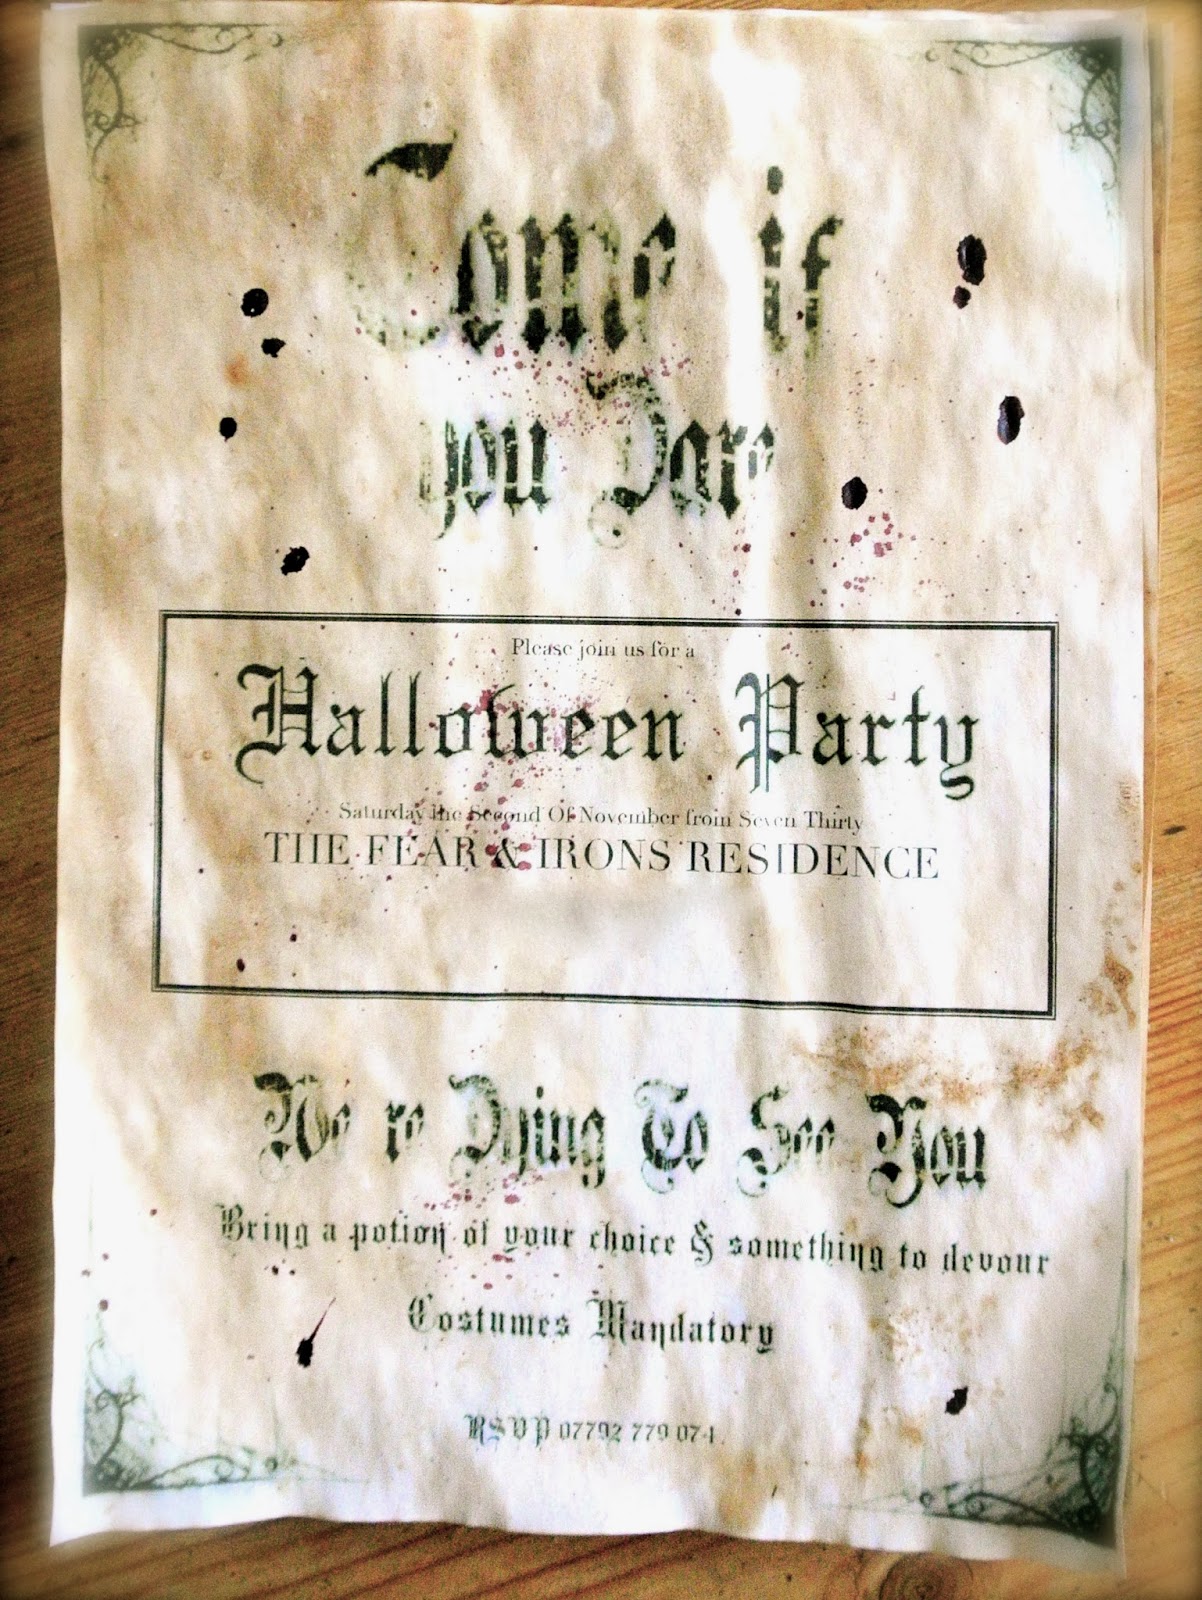 Come if
you Dare
Please join us for a
Halloween Party
Saturday the Second Of November from Seven Thirty
THE FEAR & IRONS RESIDENCE
We re Dying To See You
Bring a potion of your choice & something to devour
Costumes Mandatory
RSVP 07792 779 074